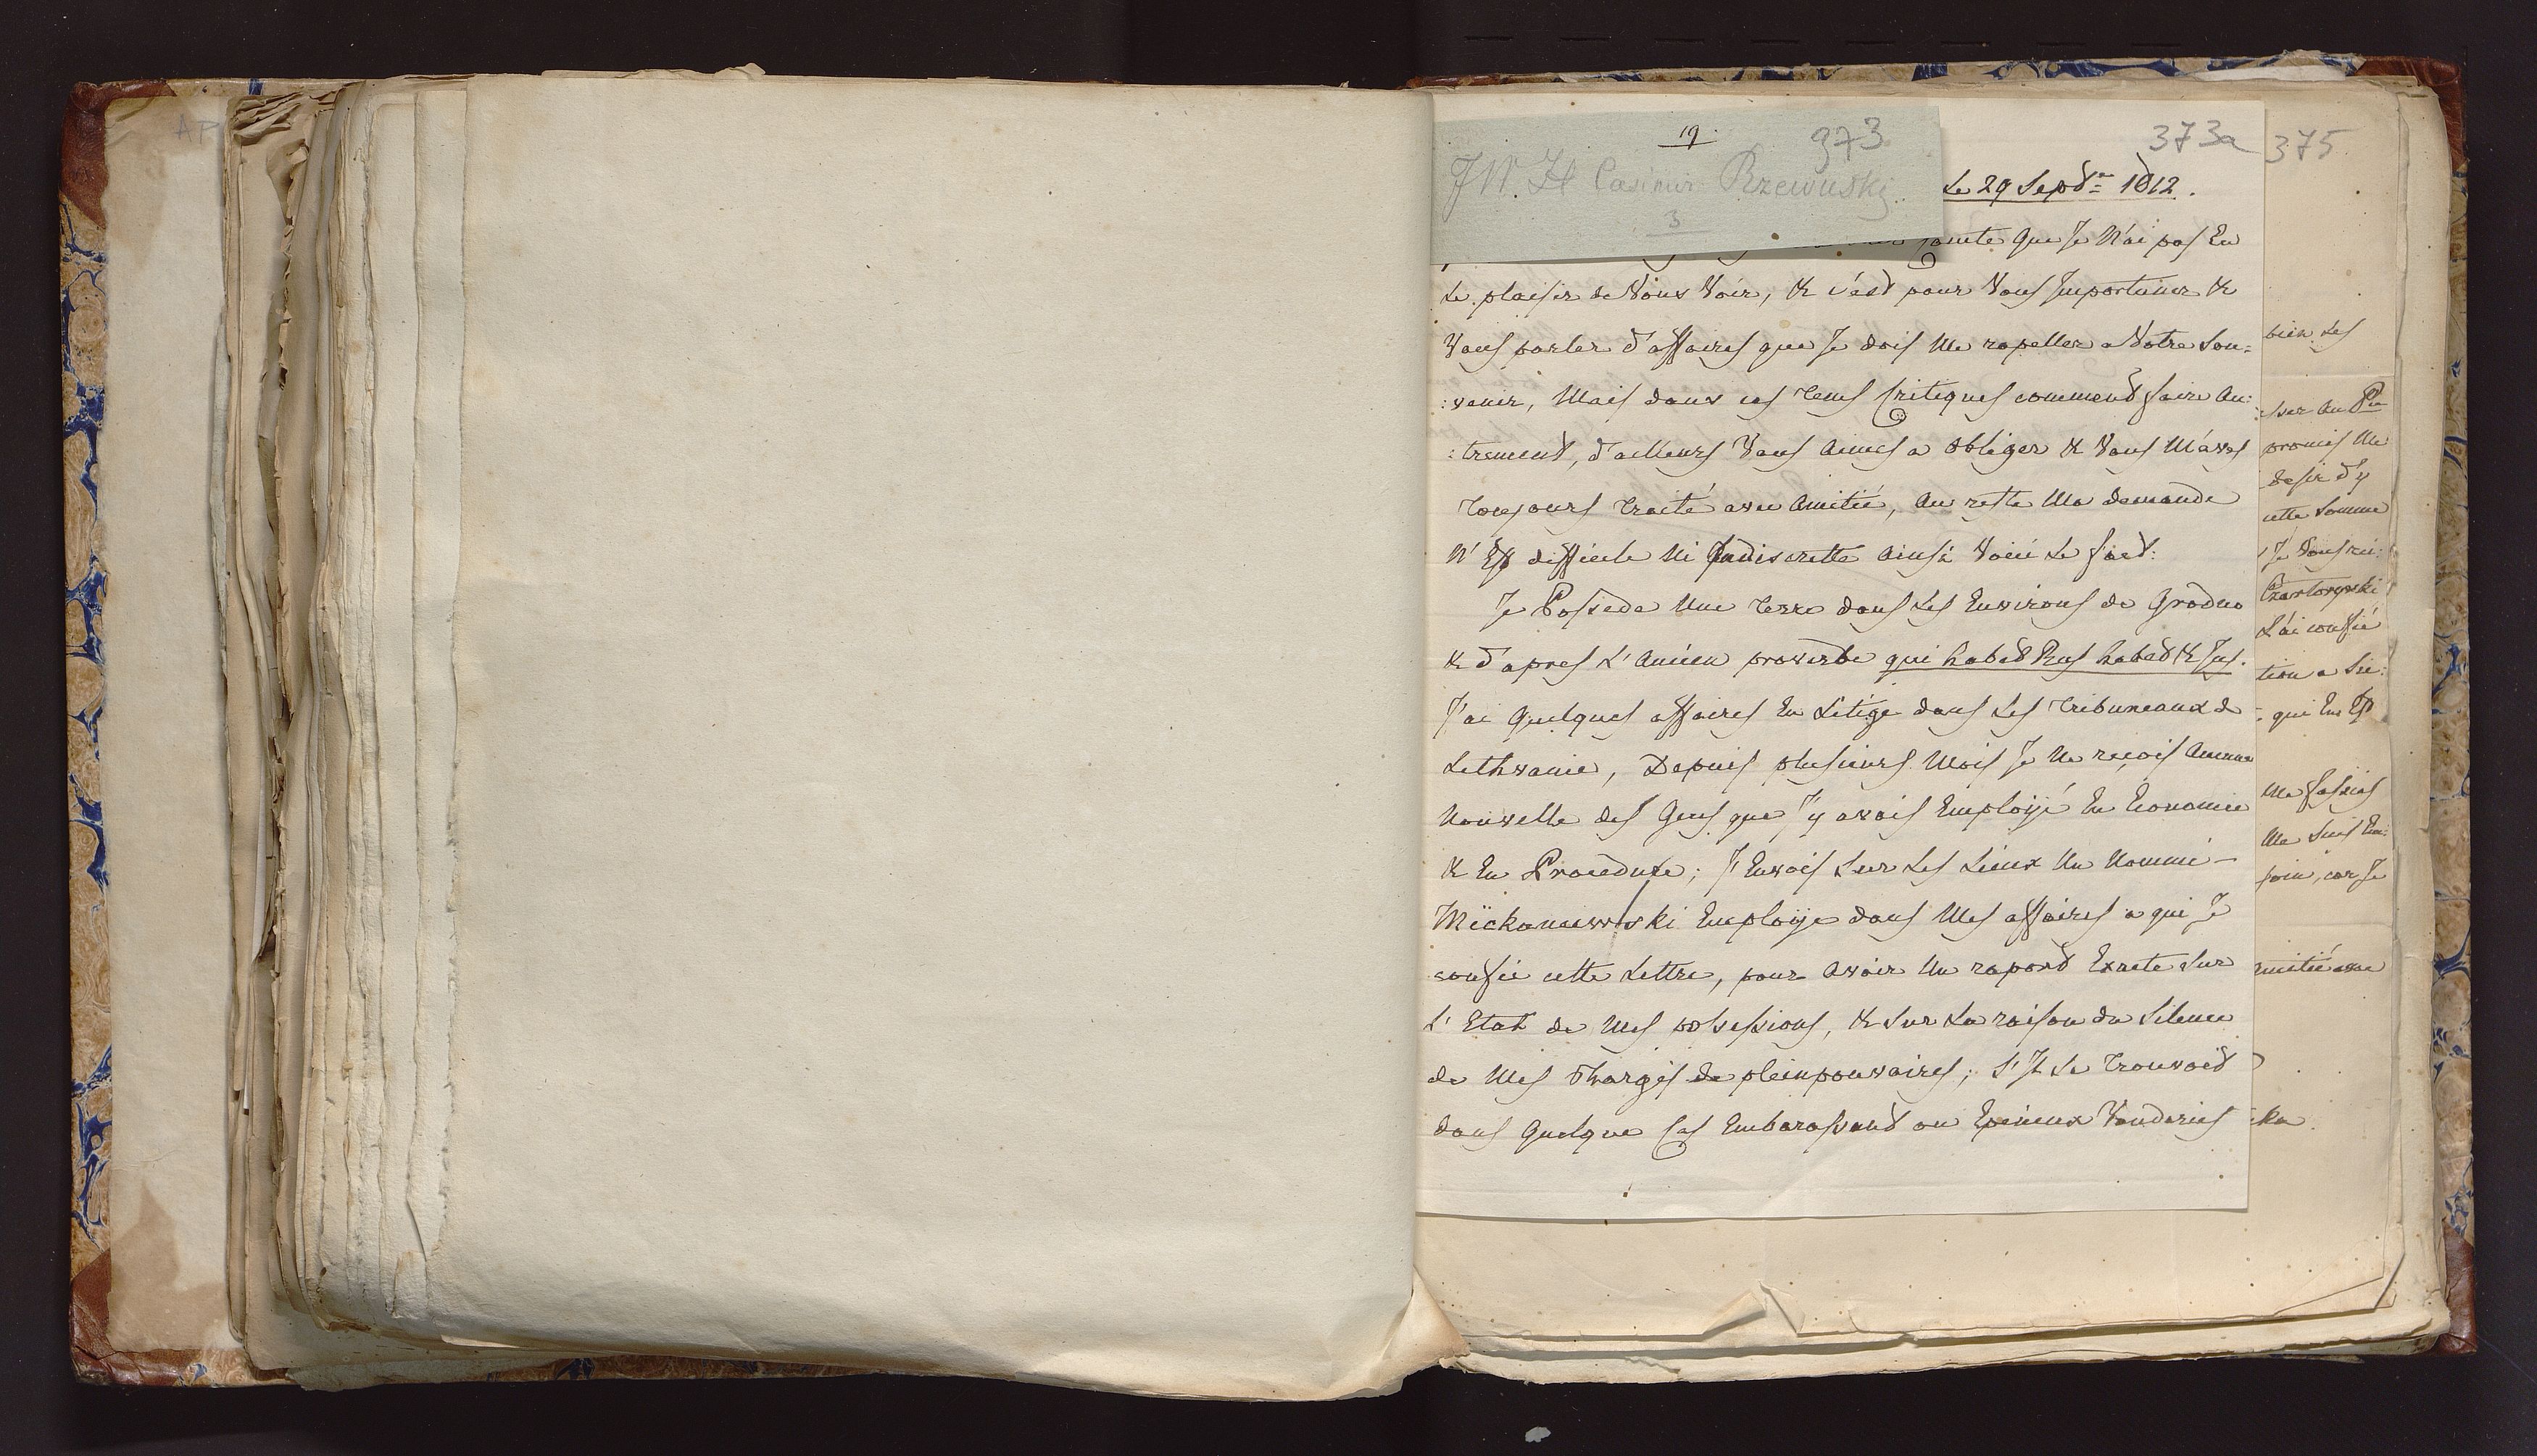 19.
973
JW. H Casimir Rzewuski
3
373a
375
Le 29 Sepbre 1812.
Comte Que Je N'ai pas Eu
Le plaisir de Vous Voir, & c'est pour Vous Importuner &
Vous parler d'affaires que Je dois Me rapeller a Votre Sou=
:venir, Mais dans ces tems Critiques comment faire Au:
:trement, d'ailleurs Vous Aimes a Obliger & Vous M'aves
toujours traité avec Amitié, Au reste Ma demande
N'Est difficile Ni Indiscrette Ainsi Voici Le fait:
Je Possede Une terre dans Les Environs de Grodno
& d'apres L'Ancien proverbe qui habet Rus habet & Jus.
J'ai Quelques affaires En Litige dans Les Tribuneaux de
Lithvanie, Depuis plusieurs Mois Je Ne reçois Aucune
Nouvelle des Gens que J'y avois Employé En Economie
& En Procedure; J'Envois Sur Les Lieux Un Nommé -
Mickaniewski Employe dans Mes affaires a qui Je
confie cette Lettre, pour Avoir Un raport Exacte Sur
L'Etat de Mes possessions, & Sur La raison du Silence
de Mes Chargés de pleinpouvoires; S'Il Se trouvoit
dans Quelque Cas Embarassant ou Epineux Voudries
bien Les
:sser Au Pce
promis Me
desir d'y
cette Somme
Je Vous
Czartoryski
L'ai confié
tion a
qui En Est
Me
Me Suis
car Je
mitié avec
ka.